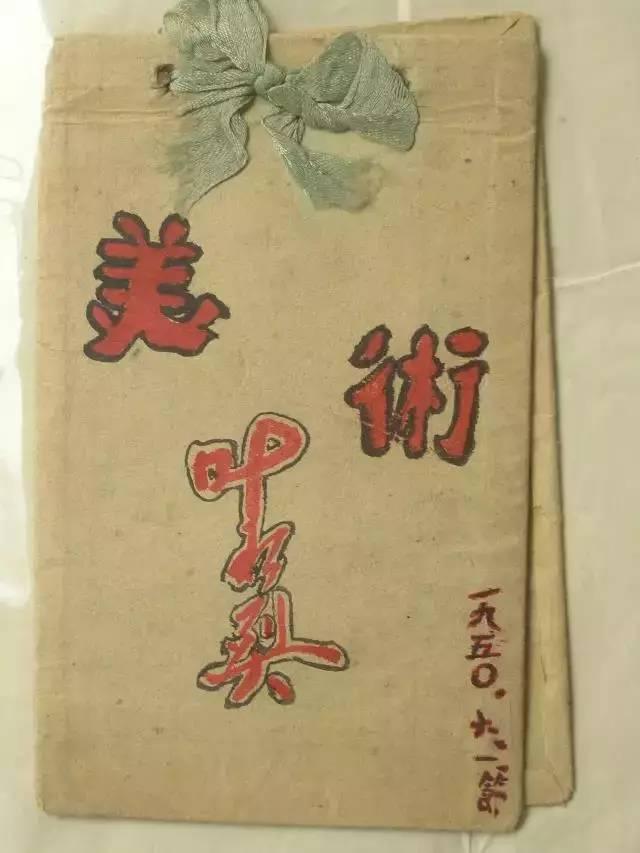 美術
叶永烈
一九五〇.六.一節